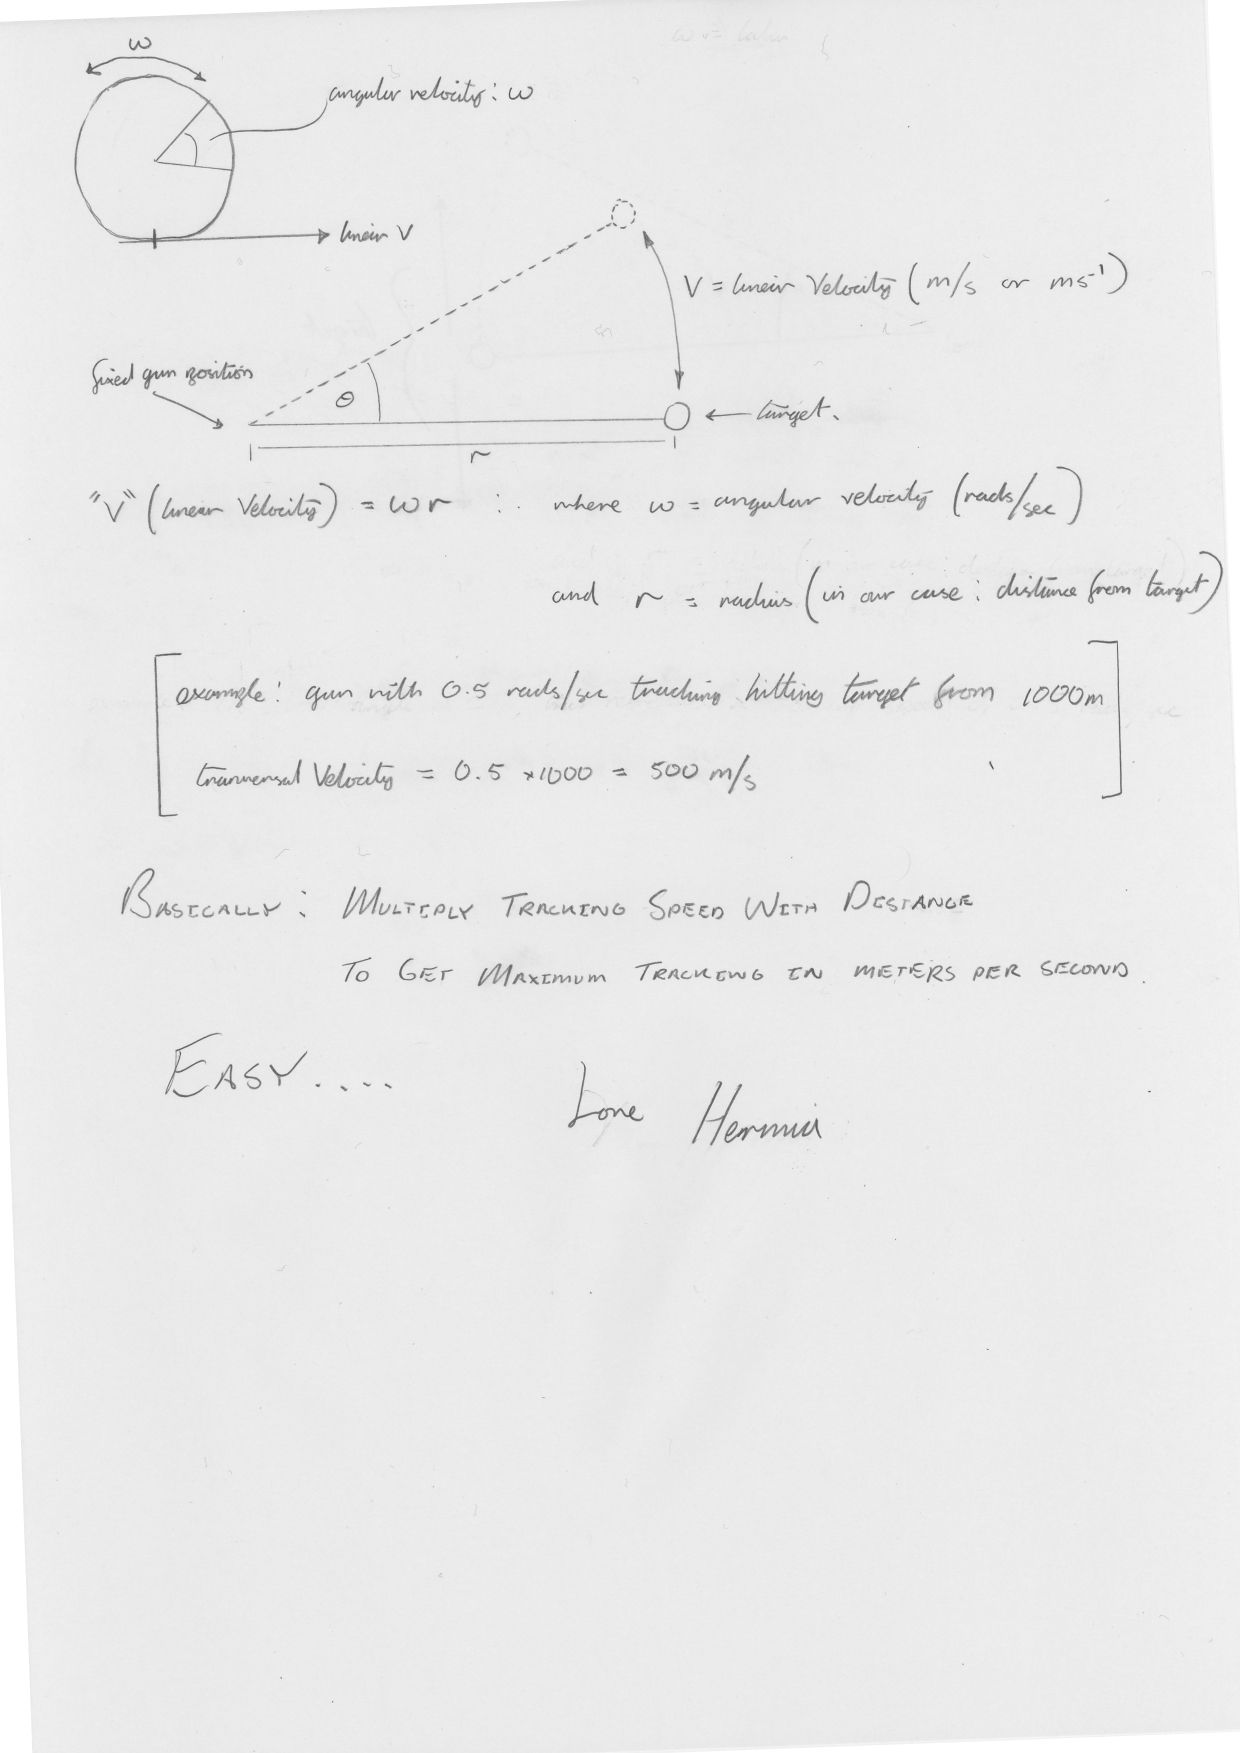 ω
angular velocity: ω
linear V
V = linear Velocity (m/s or ms⁻¹)
fixed gun position
θ
← target.
r
"V" (linear Velocity) = ωr : where ω = angular velocity (rads/sec)
and r = radius (in our case: distance from target)
example: gun with 0.5 rads/sec tracking hitting target from 1000m
transversal Velocity = 0.5 × 1000 = 500 m/s
BASICALLY: MULTIPLY TRACKING SPEED WITH DISTANCE
TO GET MAXIMUM TRACKING IN METERS PER SECOND.
EASY....
Love Hermia